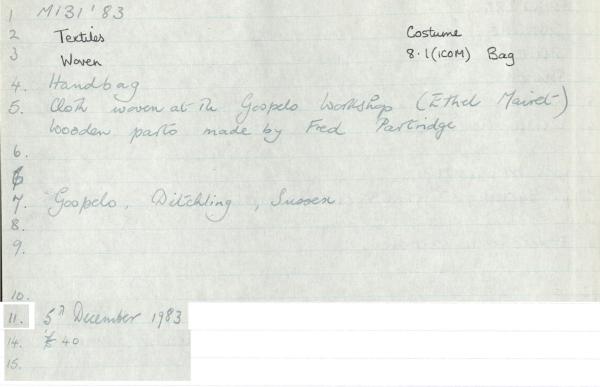 1 M131'83
2 Textiles Costume
3 Woven 8.1(ICOM) Bag
4. Handbag
5. Cloth woven at The Gospels Workshop (Ethel Mairet)
Wooden parts made by Fred Partridge
6.
6
7. Gospels, Ditchling, Sussex
8.
9.
10.
11. 5th December 1983
14. £40
15.